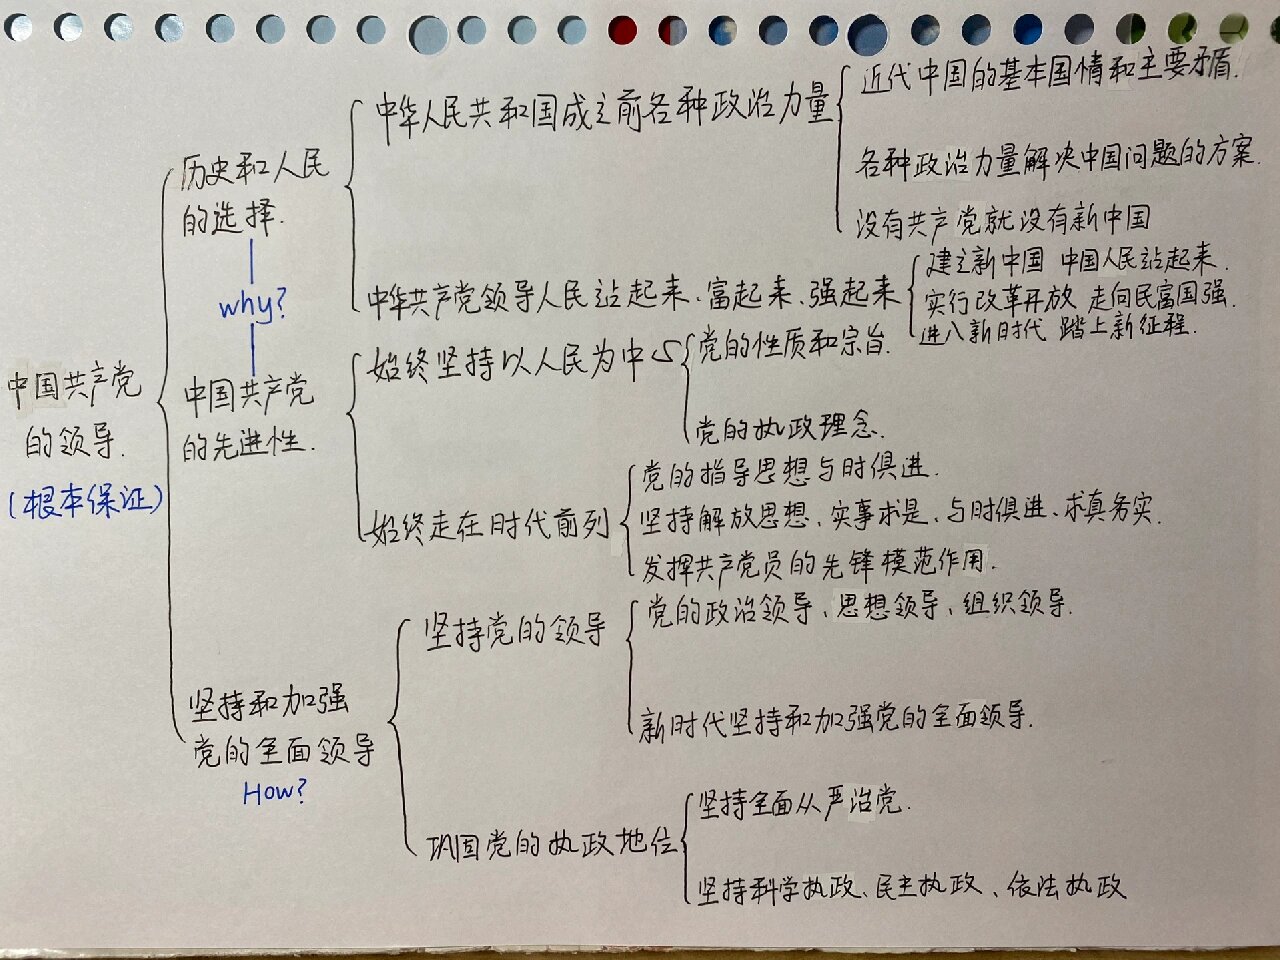 中国共产党
的领导.
(根本保证)
历史和人民
的选择.
why?
中国共产党
的先进性.
坚持和加强
党的全面领导
How?
中华人民共和国成立前各种政治力量
近代中国的基本国情和主要矛盾.
各种政治力量解决中国问题的方案.
没有共产党就没有新中国
中华共产党领导人民站起来、富起来、强起来
建立新中国 中国人民站起来.
实行改革开放 走向民富国强.
进入新时代 踏上新征程.
始终坚持以人民为中心
党的性质和宗旨.
党的执政理念.
始终走在时代前列
党的指导思想与时俱进.
坚持解放思想、实事求是、与时俱进、求真务实.
发挥共产党员的先锋模范作用.
坚持党的领导
党的政治领导、思想领导、组织领导.
新时代坚持和加强党的全面领导.
巩固党的执政地位
坚持全面从严治党.
坚持科学执政、民主执政、依法执政